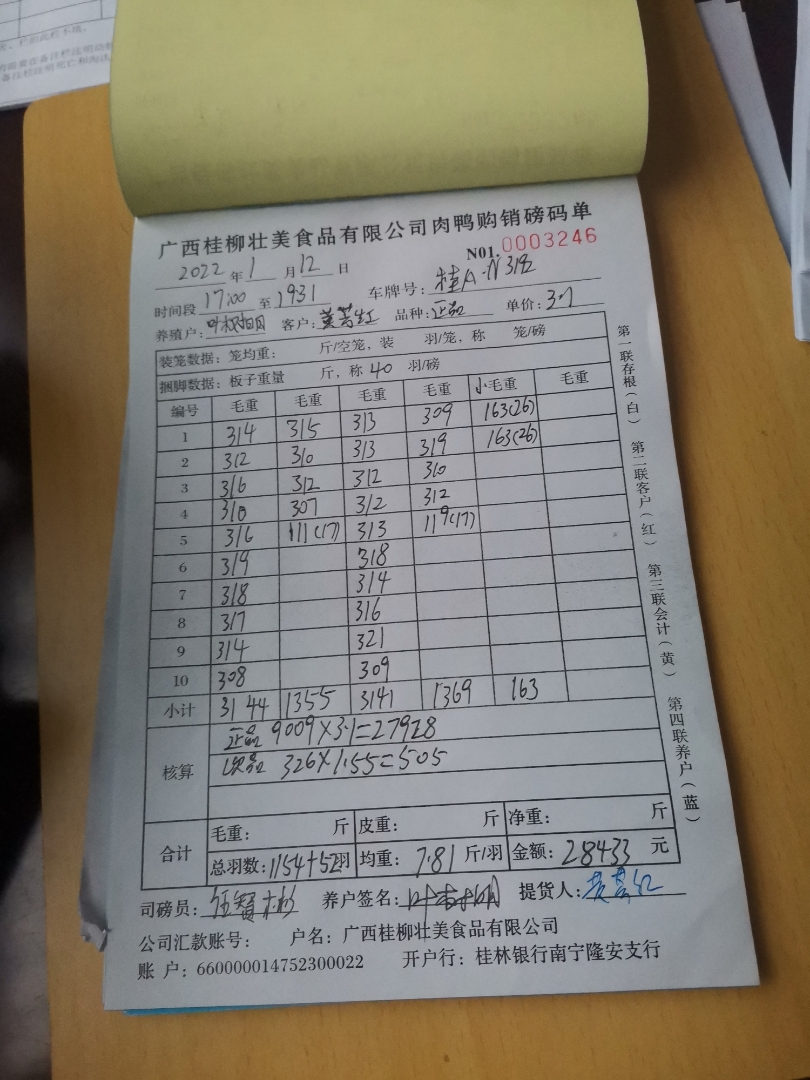 广西桂柳壮美食品有限公司肉鸭购销磅码单
N01. 0003246
2022 年 1 月 12 日
时间段 17:00 至 1931 车牌号: 桂A·N31
养殖户: 客户: 品种: 正品 单价: 3.1
装笼数据: 笼均重: 斤/空笼, 装 羽/笼, 称 笼/磅
捆脚数据: 板子重量 斤, 称 40 羽/磅
编号 毛重 毛重 毛重 毛重 小毛重 毛重
1 314 315 313 309 163(26)
2 312 310 313 319 163(26)
3 316 312 312 310
4 310 307 312 312
5 316 111(17) 313 119(17)
6 319 318
7 318 314
8 317 316
9 314 321
10 308 309
小计 3144 1355 3141 1369 163
核算 正品 9009×3.1=27928
次品 326×1.55=505
合计 毛重: 斤 皮重: 斤 净重: 斤
总羽数: 1154+52羽 均重: 7.81 斤/羽 金额: 28433 元
司磅员: 养户签名: 提货人:
公司汇款账号: 户名: 广西桂柳壮美食品有限公司
账 户: 660000014752300022 开户行: 桂林银行南宁隆安支行
第一联存根(白) 第二联客户(红) 第三联会计(黄) 第四联养户(蓝)